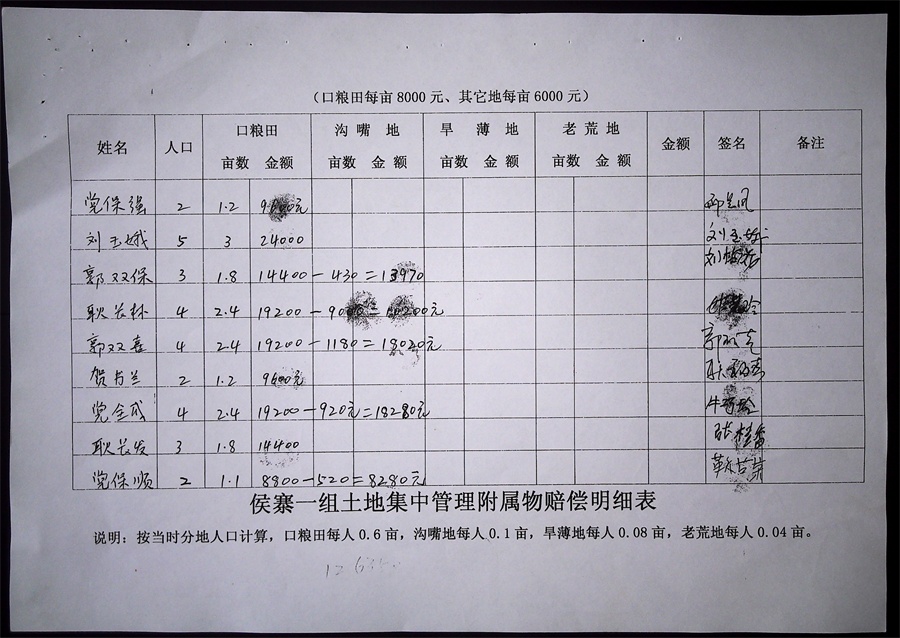 （口粮田每亩8000元、其它地每亩6000元）
姓名 人口 口粮田 沟嘴地 旱薄地 老荒地 金额 签名 备注
亩数 金额 亩数 金额 亩数 金额 亩数 金额
党保强 2 1.2 9600元
刘玉娥 5 3 24000 刘玉娥
郭双保 3 1.8 14400-430=13970
耿长林 4 2.4 19200-9000=10200元
郭双喜 4 2.4 19200-1180=18020元
贺占兰 2 1.2 9600元
党全成 4 2.4 19200-920元=18280元
耿长发 3 1.8 14400
党保顺 2 1.1 8800-520=8280元
侯寨一组土地集中管理附属物赔偿明细表
说明：按当时分地人口计算，口粮田每人0.6亩，沟嘴地每人0.1亩，旱薄地每人0.08亩，老荒地每人0.04亩。